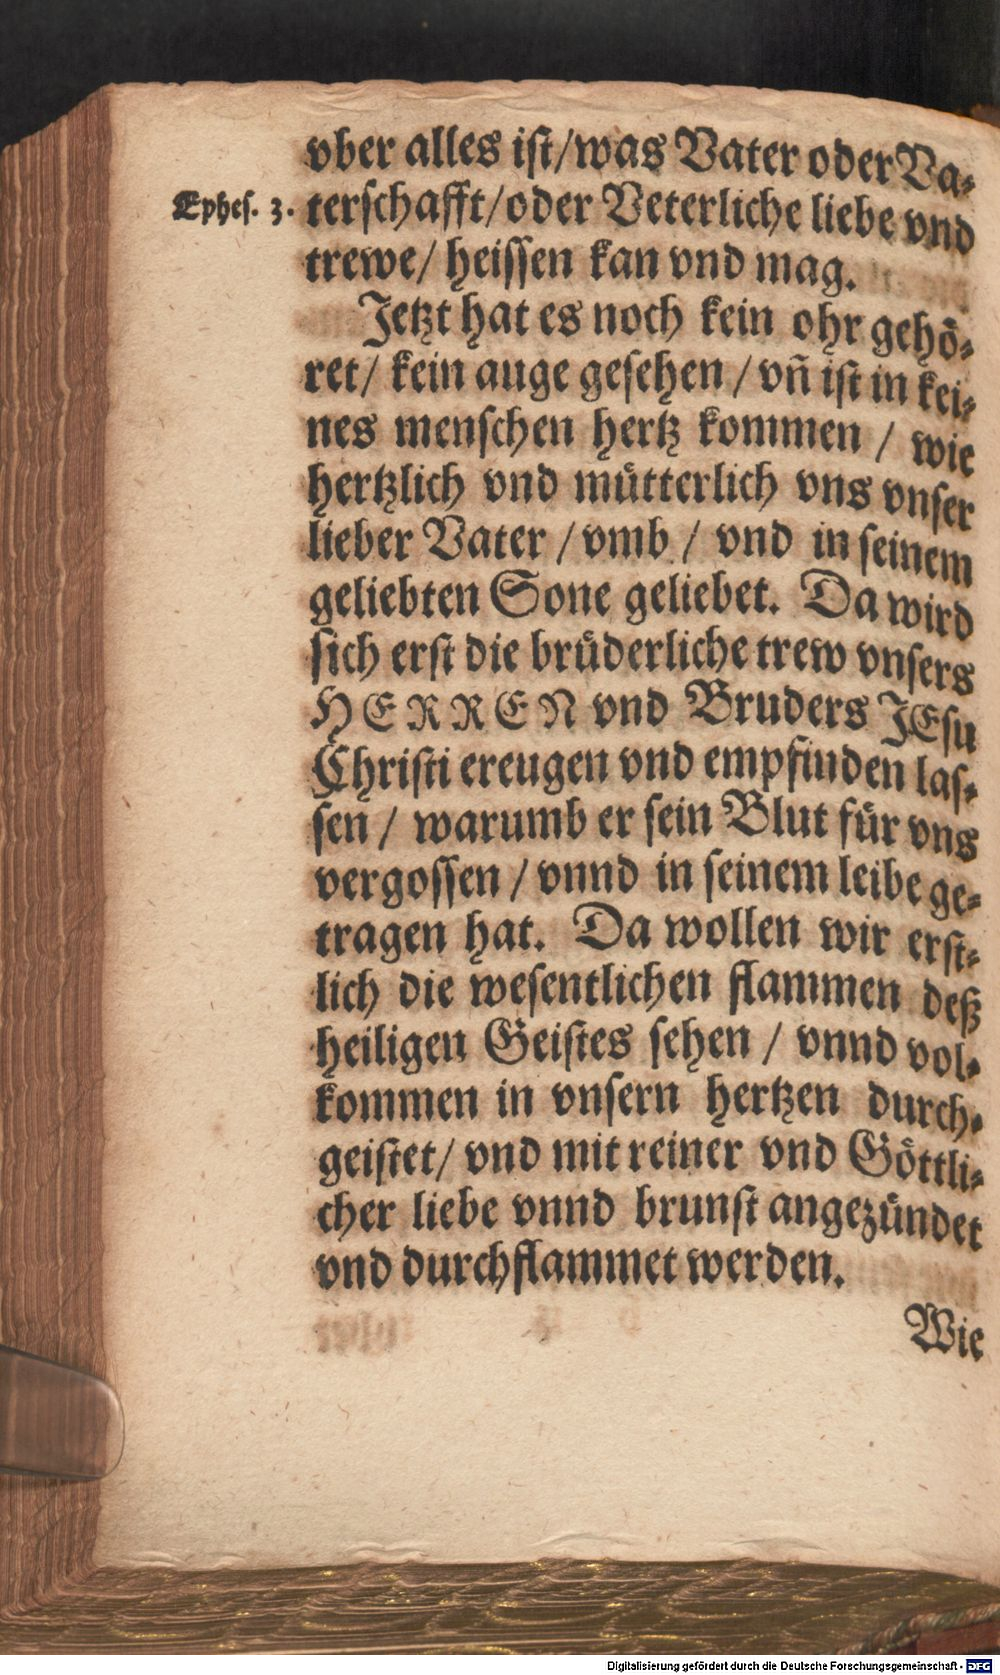 vber alles ist/was Vater oder Va-
Ephes. 3. terschafft/oder Veterliche liebe vnd
trewe/ heissen kan vnd mag.
Jetzt hat es noch kein ohr gehö-
ret/ kein auge gesehen/ vñ ist in kei-
nes menschen hertz kommen / wie
hertzlich vnd mütterlich vns vnser
lieber Vater /vmb / vnd in seinem
geliebten Sone geliebet. Da wird
sich erst die brüderliche trew vnsers
HERREN vnd Bruders JEsu
Christi ereugen vnd empfinden las-
sen / warumb er sein Blut für vns
vergossen / vnnd in seinem leibe ge-
tragen hat. Da wollen wir erst-
lich die wesentlichen flammen deß
heiligen Geistes sehen / vnnd vol-
kommen in vnsern hertzen durch-
geistet/ vnd mit reiner vnd Göttli-
cher liebe vnnd brunst angezündet
vnd durchflammet werden.
Wie
Digitalisierung gefördert durch die Deutsche Forschungsgemeinschaft - DFG